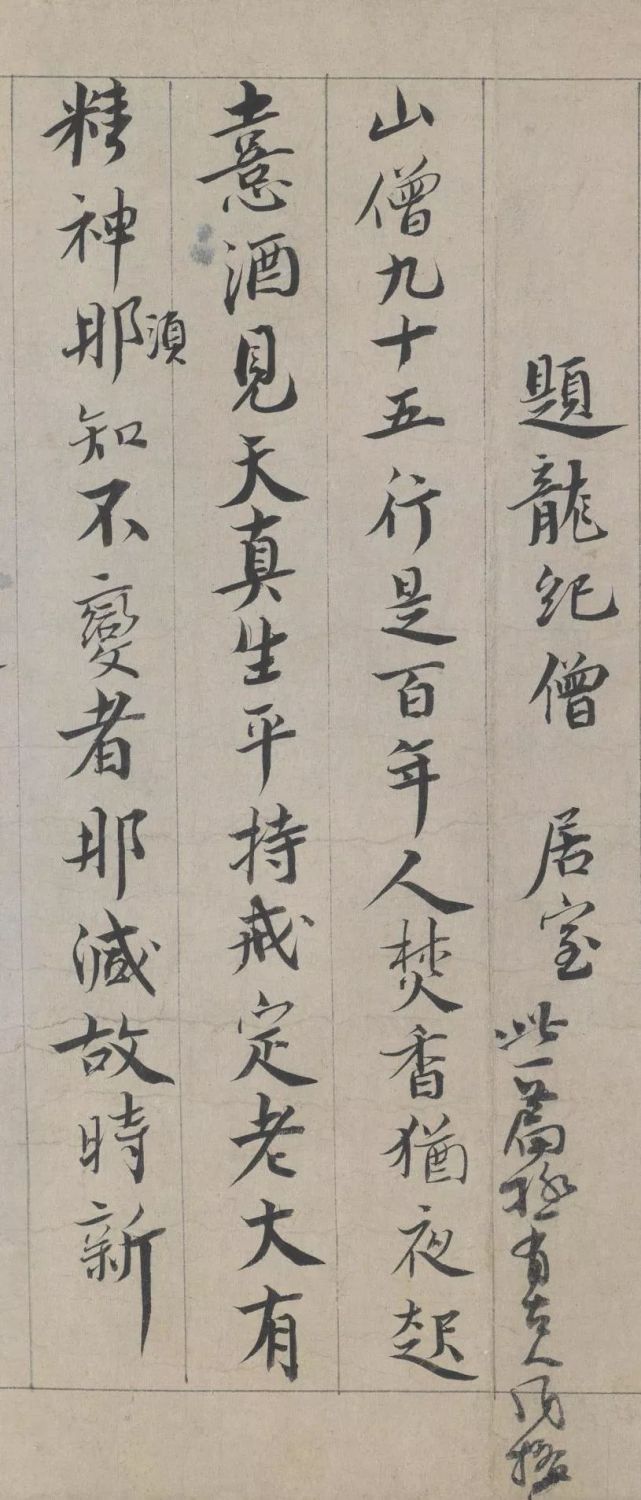 題龍紀僧 居室 此一篇極有古人風格
山僧九十五行是百年人焚香猶夜起
憙酒見天真生平持戒定老大有
精神那須知不變者那減故時新